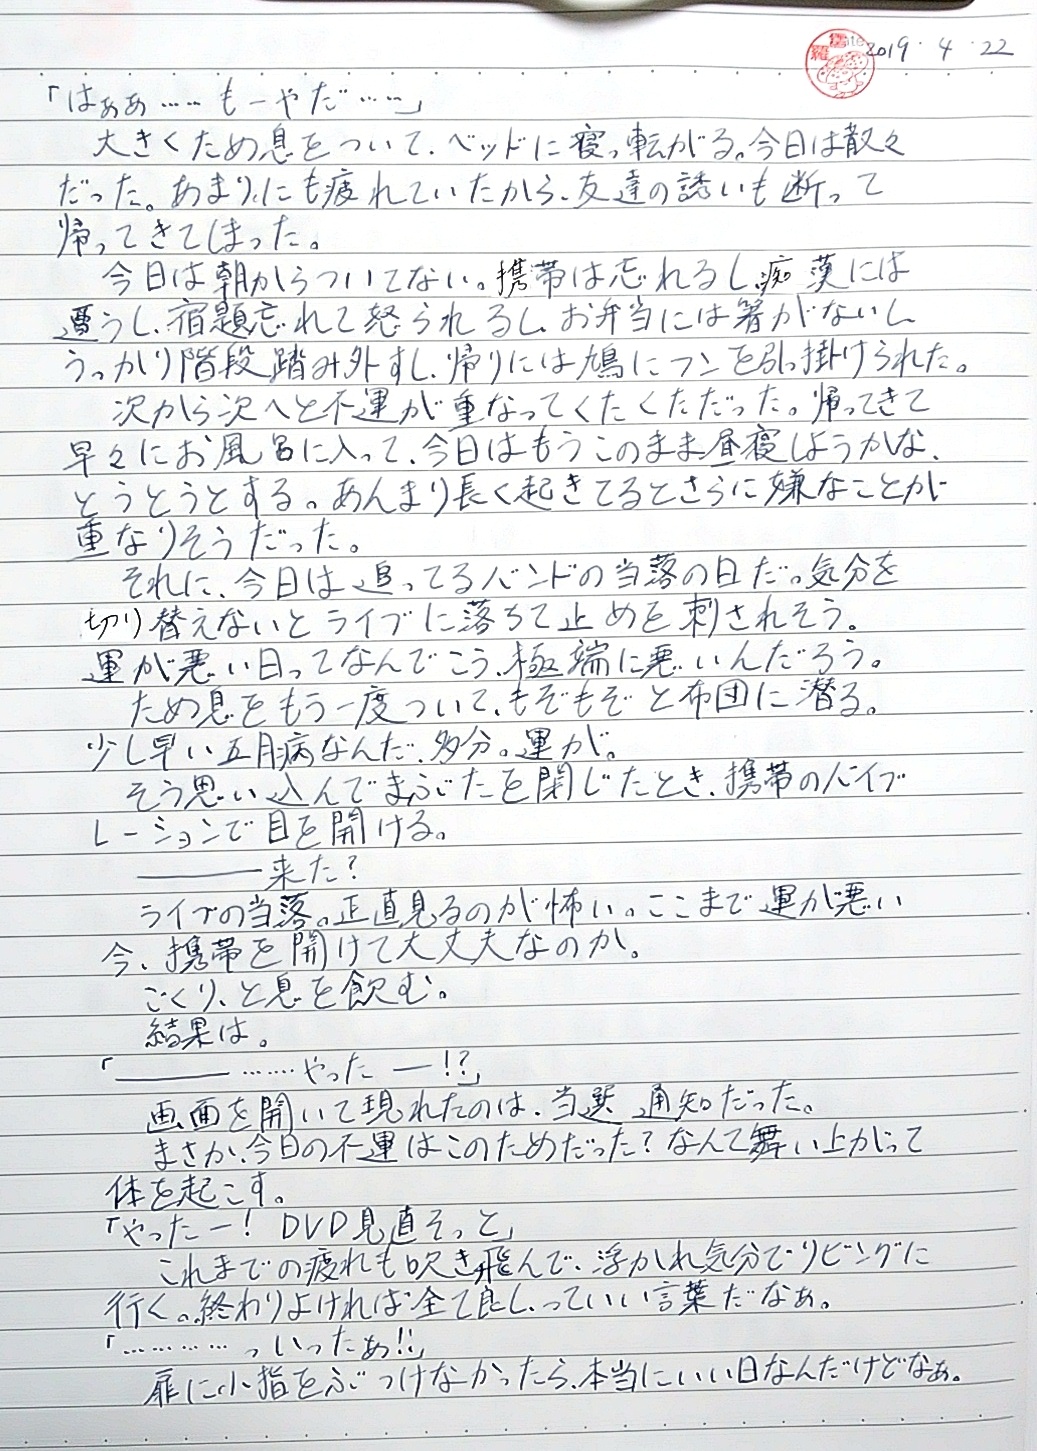 2019・4・22
「はぁぁ……もーやだ……」
大きくため息をついて、ベッドに寝っ転がる。今日は散々
だった。あまりにも疲れていたから、友達の誘いも断って
帰ってきてしまった。
今日は朝からついてない。携帯は忘れるし、痴漢には
遭うし、宿題忘れて怒られるし、お弁当には箸がないし
うっかり階段踏み外すし、帰りには鳩にフンを引っ掛けられた。
次から次へと不運が重なってくたくただった。帰ってきて
早々にお風呂に入って、今日はもうこのまま昼寝しようかな、
とうとうとする。あんまり長く起きてるとさらに嫌なことが
重なりそうだった。
それに、今日は追ってるバンドの当落の日だ。気分を
切り替えないとライブに落ちて止めを刺されそう。
運が悪い日ってなんでこう、極端に悪いんだろう。
ため息をもう一度ついて、もぞもぞと布団に潜る。
少し早い五月病なんだ、多分。運が。
そう思い込んでまぶたを閉じたとき、携帯のバイブ
レーションで目を開ける。
―――来た?
ライブの当落。正直見るのが怖い。ここまで運が悪い
今、携帯を開けて大丈夫なのか。
ごくり、と息を飲む。
結果は。
「―――……やったー!?」
画面を開いて現れたのは、当選通知だった。
まさか、今日の不運はこのためだった?なんて舞い上がって
体を起こす。
「やったー! DVD見直そっと」
これまでの疲れも吹き飛んで、浮かれ気分でリビングに
行く。終わりよければ全て良し、っていい言葉だなぁ。
「…………っいったぁ!!」
扉に小指をぶつけなかったら、本当にいい日なんだけどなぁ。